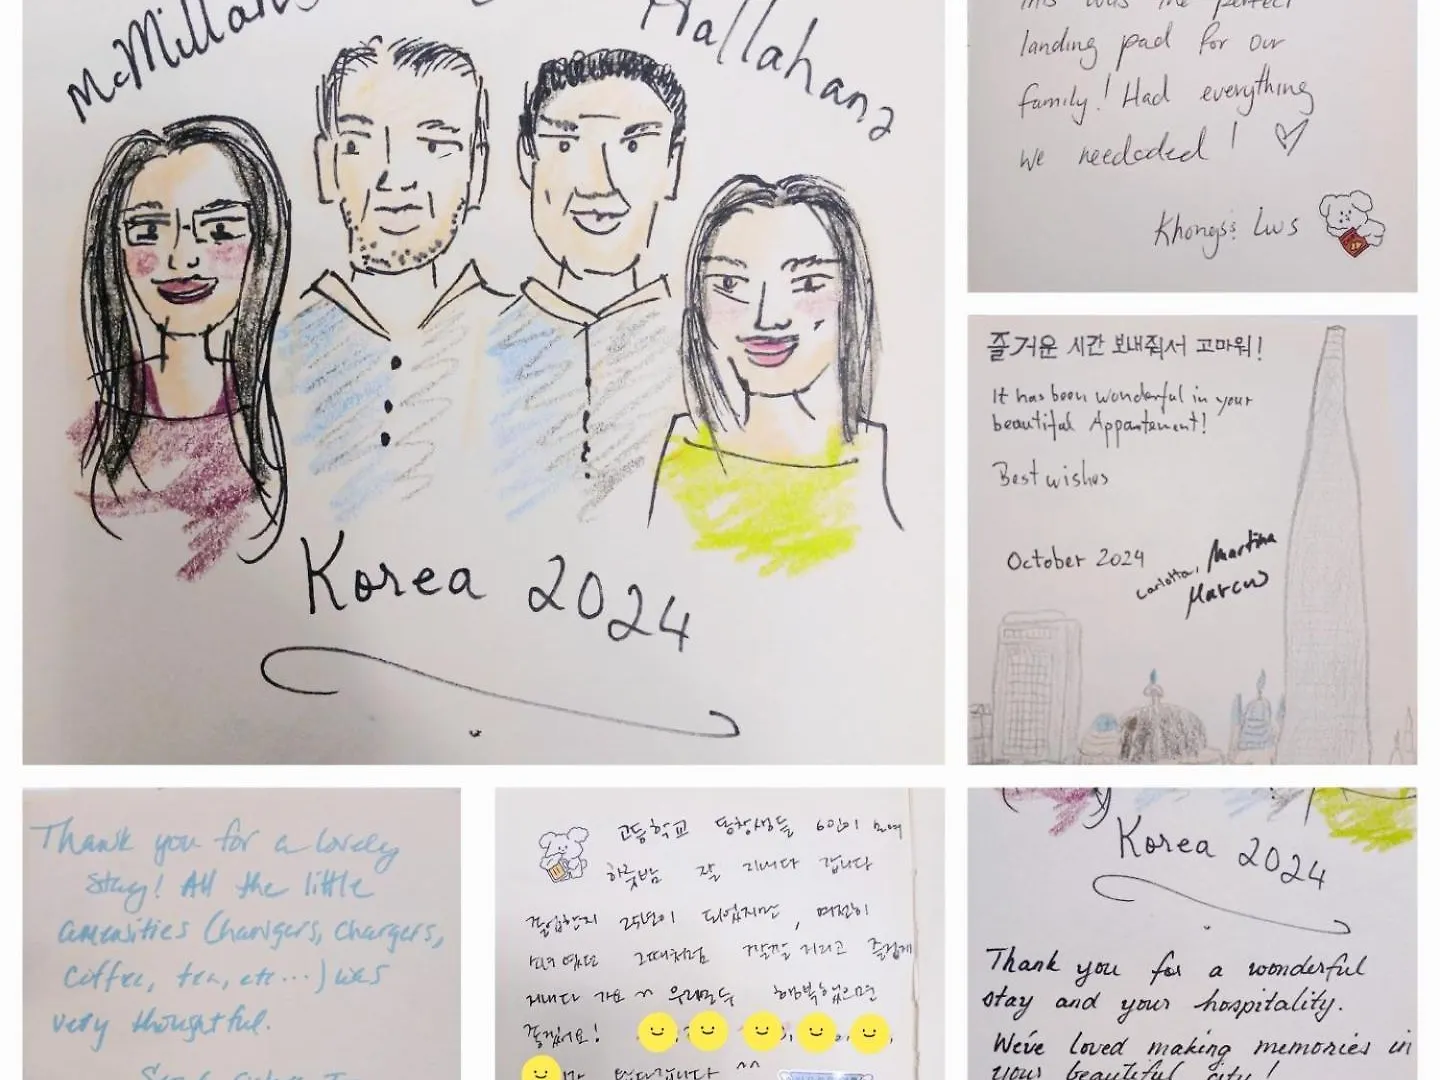 McMillan
Hallahans
Korea 2024
This was the perfect
landing pad for our
family! Had everything
we needoded!
Khongsis Lws
즐거운 시간 보내줘서 고마워!
It has been wonderful in your
beautiful Appartement!
Best wishes
October 2024
Carlotta, Martina
Marcus
Thank you for a lovely
stay! All the little
amenities (hangers, chargers,
coffee, tea, etc...) was
very thoughtful.
고등학교 동창생들 6인이 모여
하룻밤 잘 지내다 갑니다
졸업한지 25년이 되었지만, 여전히
소녀였던 그때처럼 깔깔거리고 즐겁게
지내다 가요 ~ 우리모두 행복했으면
좋겠어요!
^^
Korea 2024
Thank you for a wonderful
stay and your hospitality.
We've loved making memories in
your beautiful city!